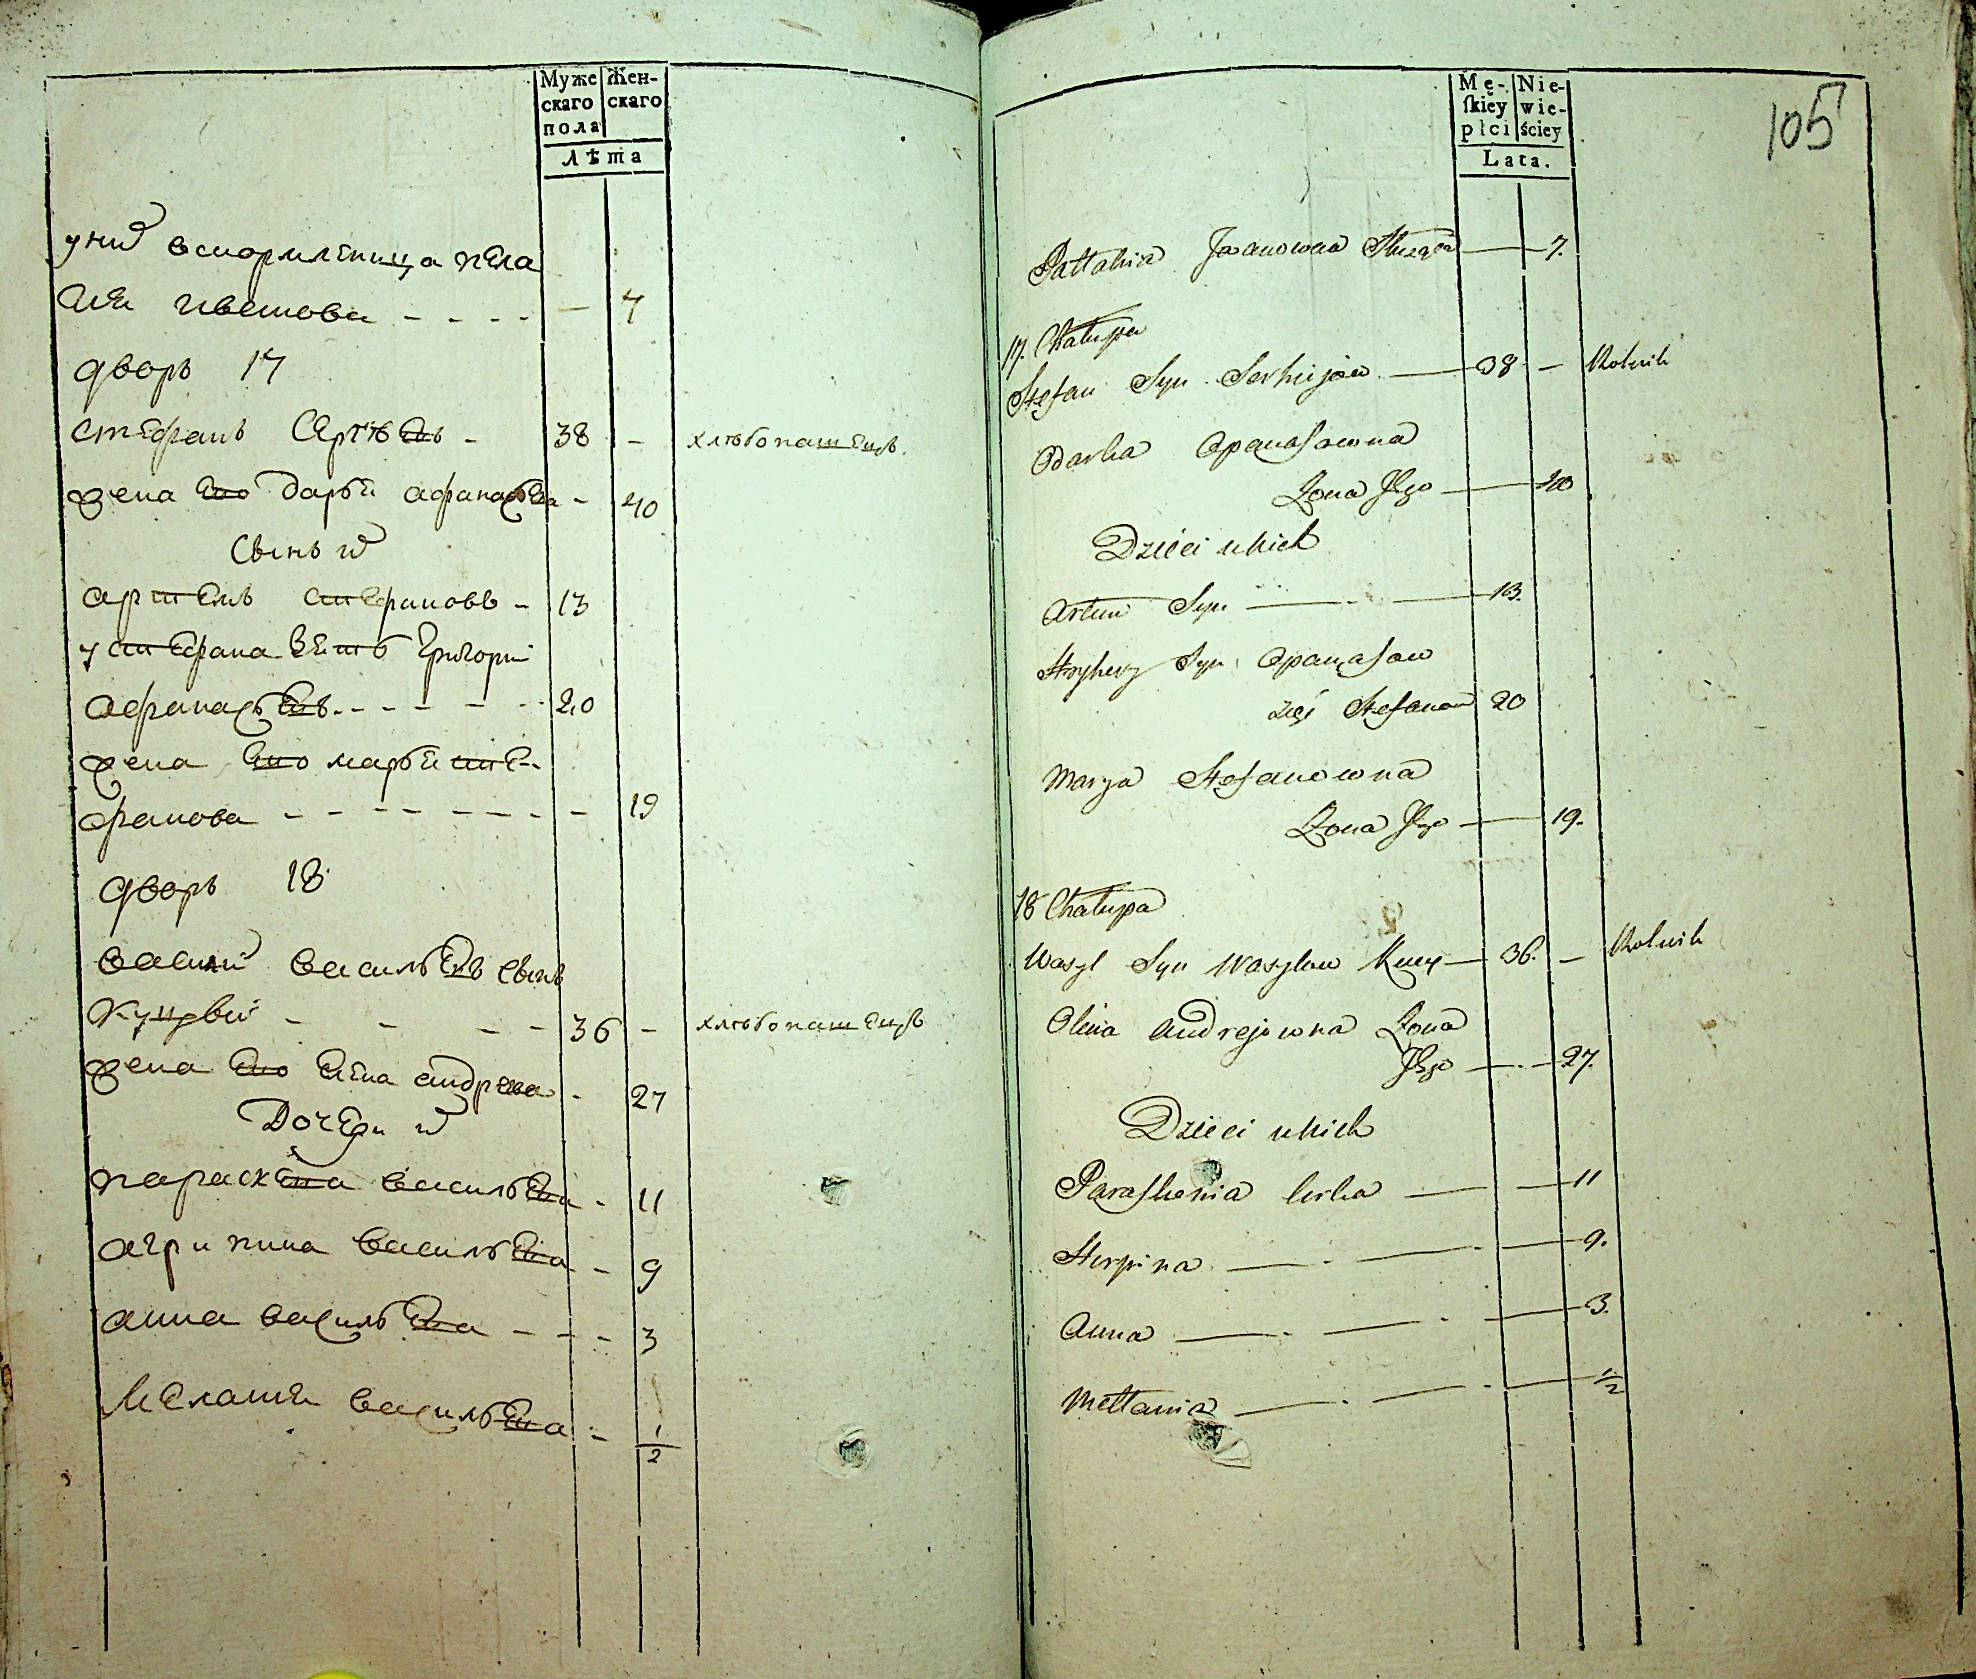 Муже
скаго
пола
Жен-
скаго
лѣта
у них вскормленица пела
гия иванова - - - - — 7
дворъ 17
стефанъ Сергѣевъ - 38 - хлѣбопашецъ.
жена его дарья афанасьева - 40
Сынъ их
артемъ стефановъ - 13
у стефана зять григорий
афанасьевъ - - - - - 20
жена его марья сте-
фанова - - - - - - - - 19
дворъ 18
василий васильевъ сынъ
- - - - 36 - хлѣбопашецъ
жена его елена андреева - 27
Дочери их
параскева васильева - 11
агрипина васильева - - 9
анна васильева - - - - 3
Мелания васильева - - 1/2
Mę-
skiey
płci
Nie-
wie-
ściey
Lata.
105
Pallahia Iwanowna — 7.
17. Chałupa
Stefan Syn Serhijow — 38 — Rolnik
Odarka Opanasowna
Żona Jego — 40
Dzieci u nich
Artem Syn — 13.
Hryhory Syn Opanasow
zięć Stefanow 20
Marya Stefanowna
Żona Jego — 19.
18 Chałupa
Wasyl Syn Wasylow — 36. — Rolnik
Olena Andrejowna Żona
Jego — 27.
Dzieci u nich
Paraskewia Corka — 11
Horpina — 9.
Anna — 3.
Mellania — 1/2